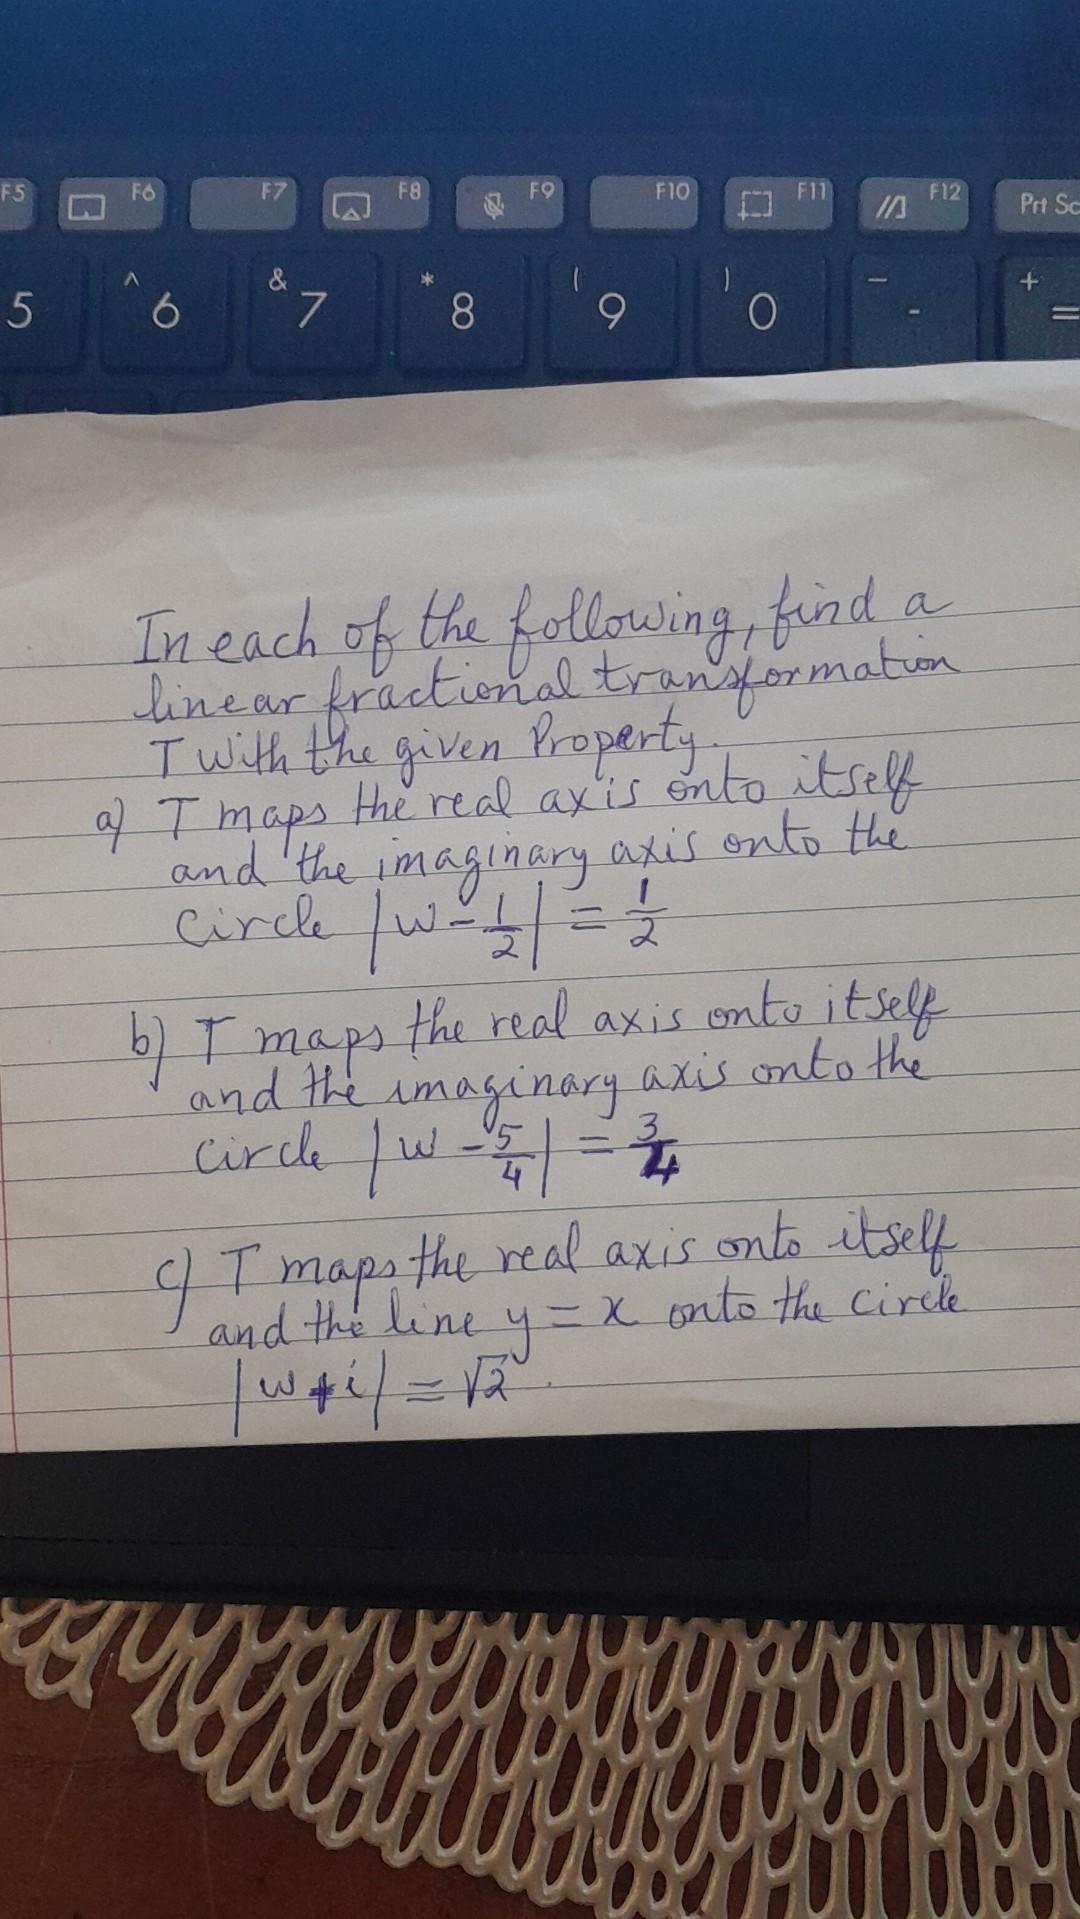 F5 F6 F7 F8 F9 F10 F11 F12 Prt Sc
5 ^ 6 & 7 * 8 ( 9 ) 0 _ - + =
In each of the following, find a
linear fractional transformation
T with the given Property.
a) T maps the real axis onto itself
and the imaginary axis onto the
Circle |w - 1/2| = 1/2
b) T maps the real axis onto itself
and the imaginary axis onto the
circle |w - 5/4| = 3/4
c) T maps the real axis onto itself
and the line y = x onto the circle
|w + i| = √2.